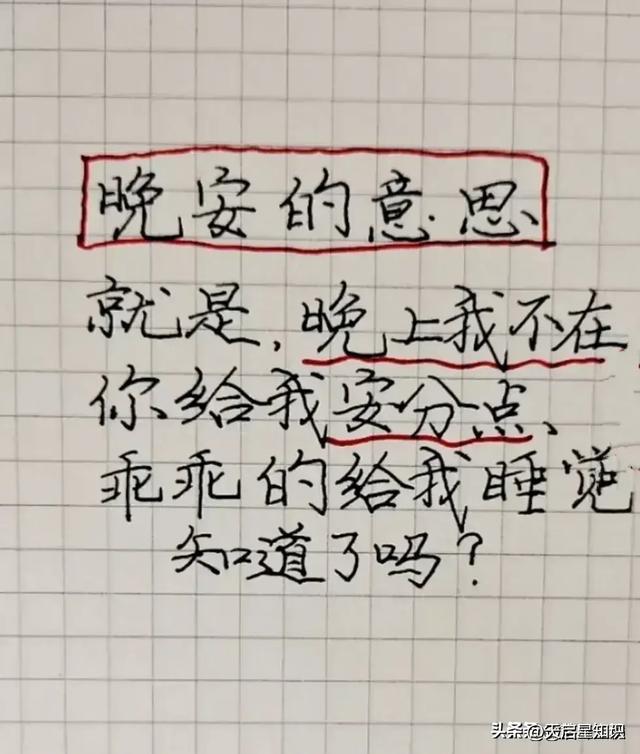 晚安的意思
就是,晚上我不在
你给我安分点、
乖乖的给我睡觉
知道了吗?
头条 @天启星知识